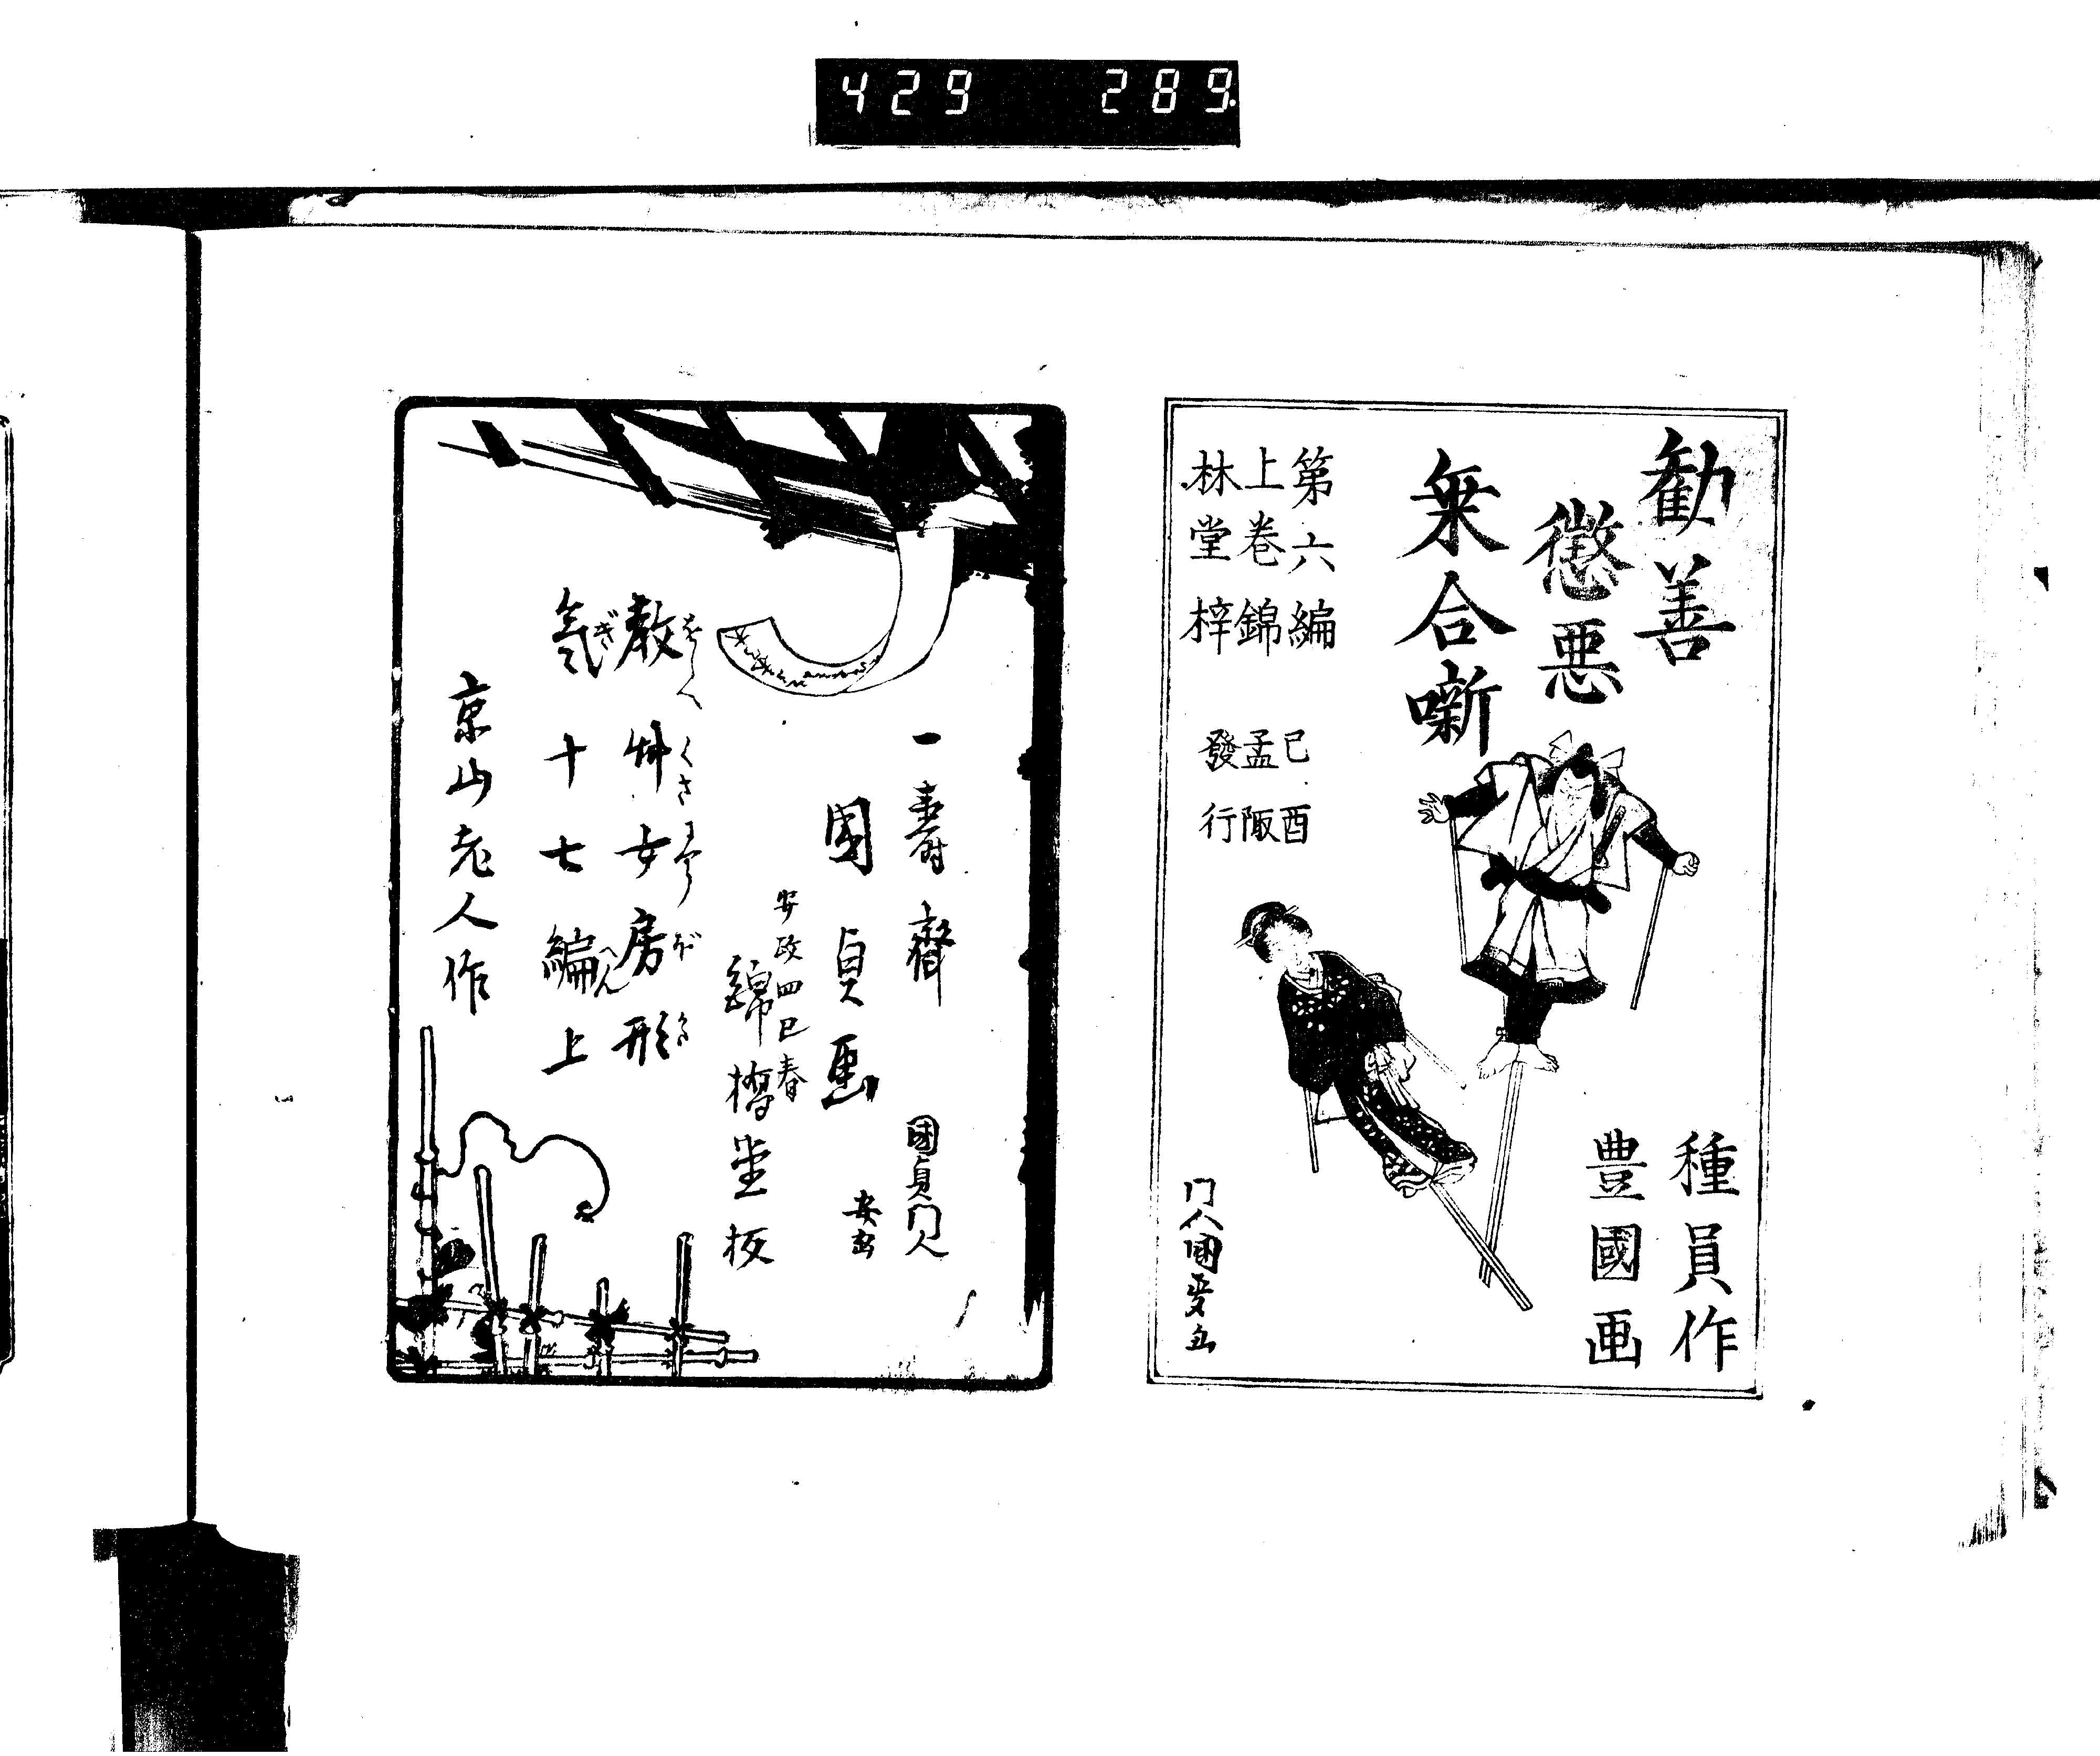 429 289
勧善
懲悪
乗合噺
第六編
上巻錦
林堂梓
已酉
孟陬
發行
種員作
豊國画
门人国
一壽齋
國貞画
國貞门人
安政四巳春
錦橋堂板
教艸女房形
をしへくさ
氣十七編上
ぎ
へん
京山老人作